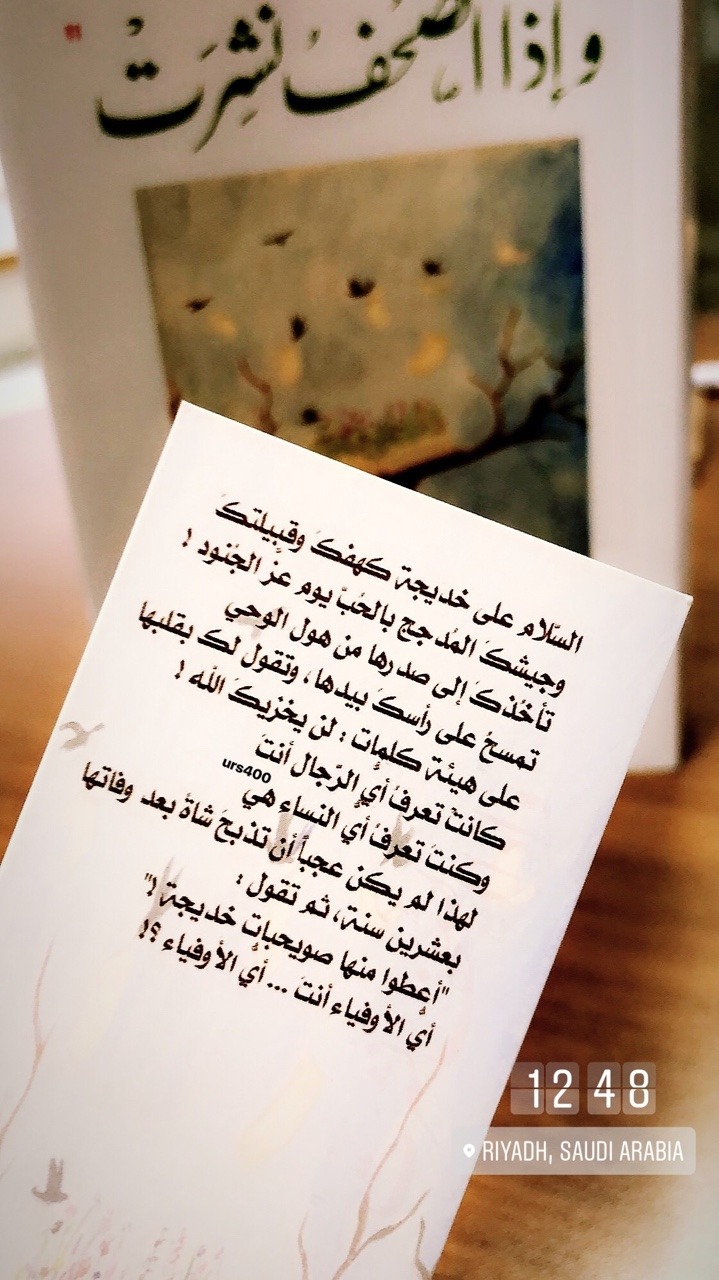 "وإذا الصحف نشرت"
السّلام على خديجة كهفكَ وقبيلتكَ
وجيشكَ المُدجج بالحُبّ يوم عزّ الجُنود !
تأخُذكَ إلى صدرها من هول الوحي
تمسحُ على رأسكَ بيدها، وتقول لكَ بقلبها
على هيئة كلماتٍ : لن يخزيكَ الله !
كانتْ تعرفُ أي الرّجال أنتَ
urs400
وكنتَ تعرفُ أيُّ النساء هي
لهذا لم يكن عجباً أن تذبحَ شاةً بعد وفاتها
بعشرين سنة، ثم تقول :
"أعطوا منها صويحباتِ خديجة !"
أيّ الأوفياء أنتَ ... أي الأوفياء ؟!
12 48
RIYADH, SAUDI ARABIA